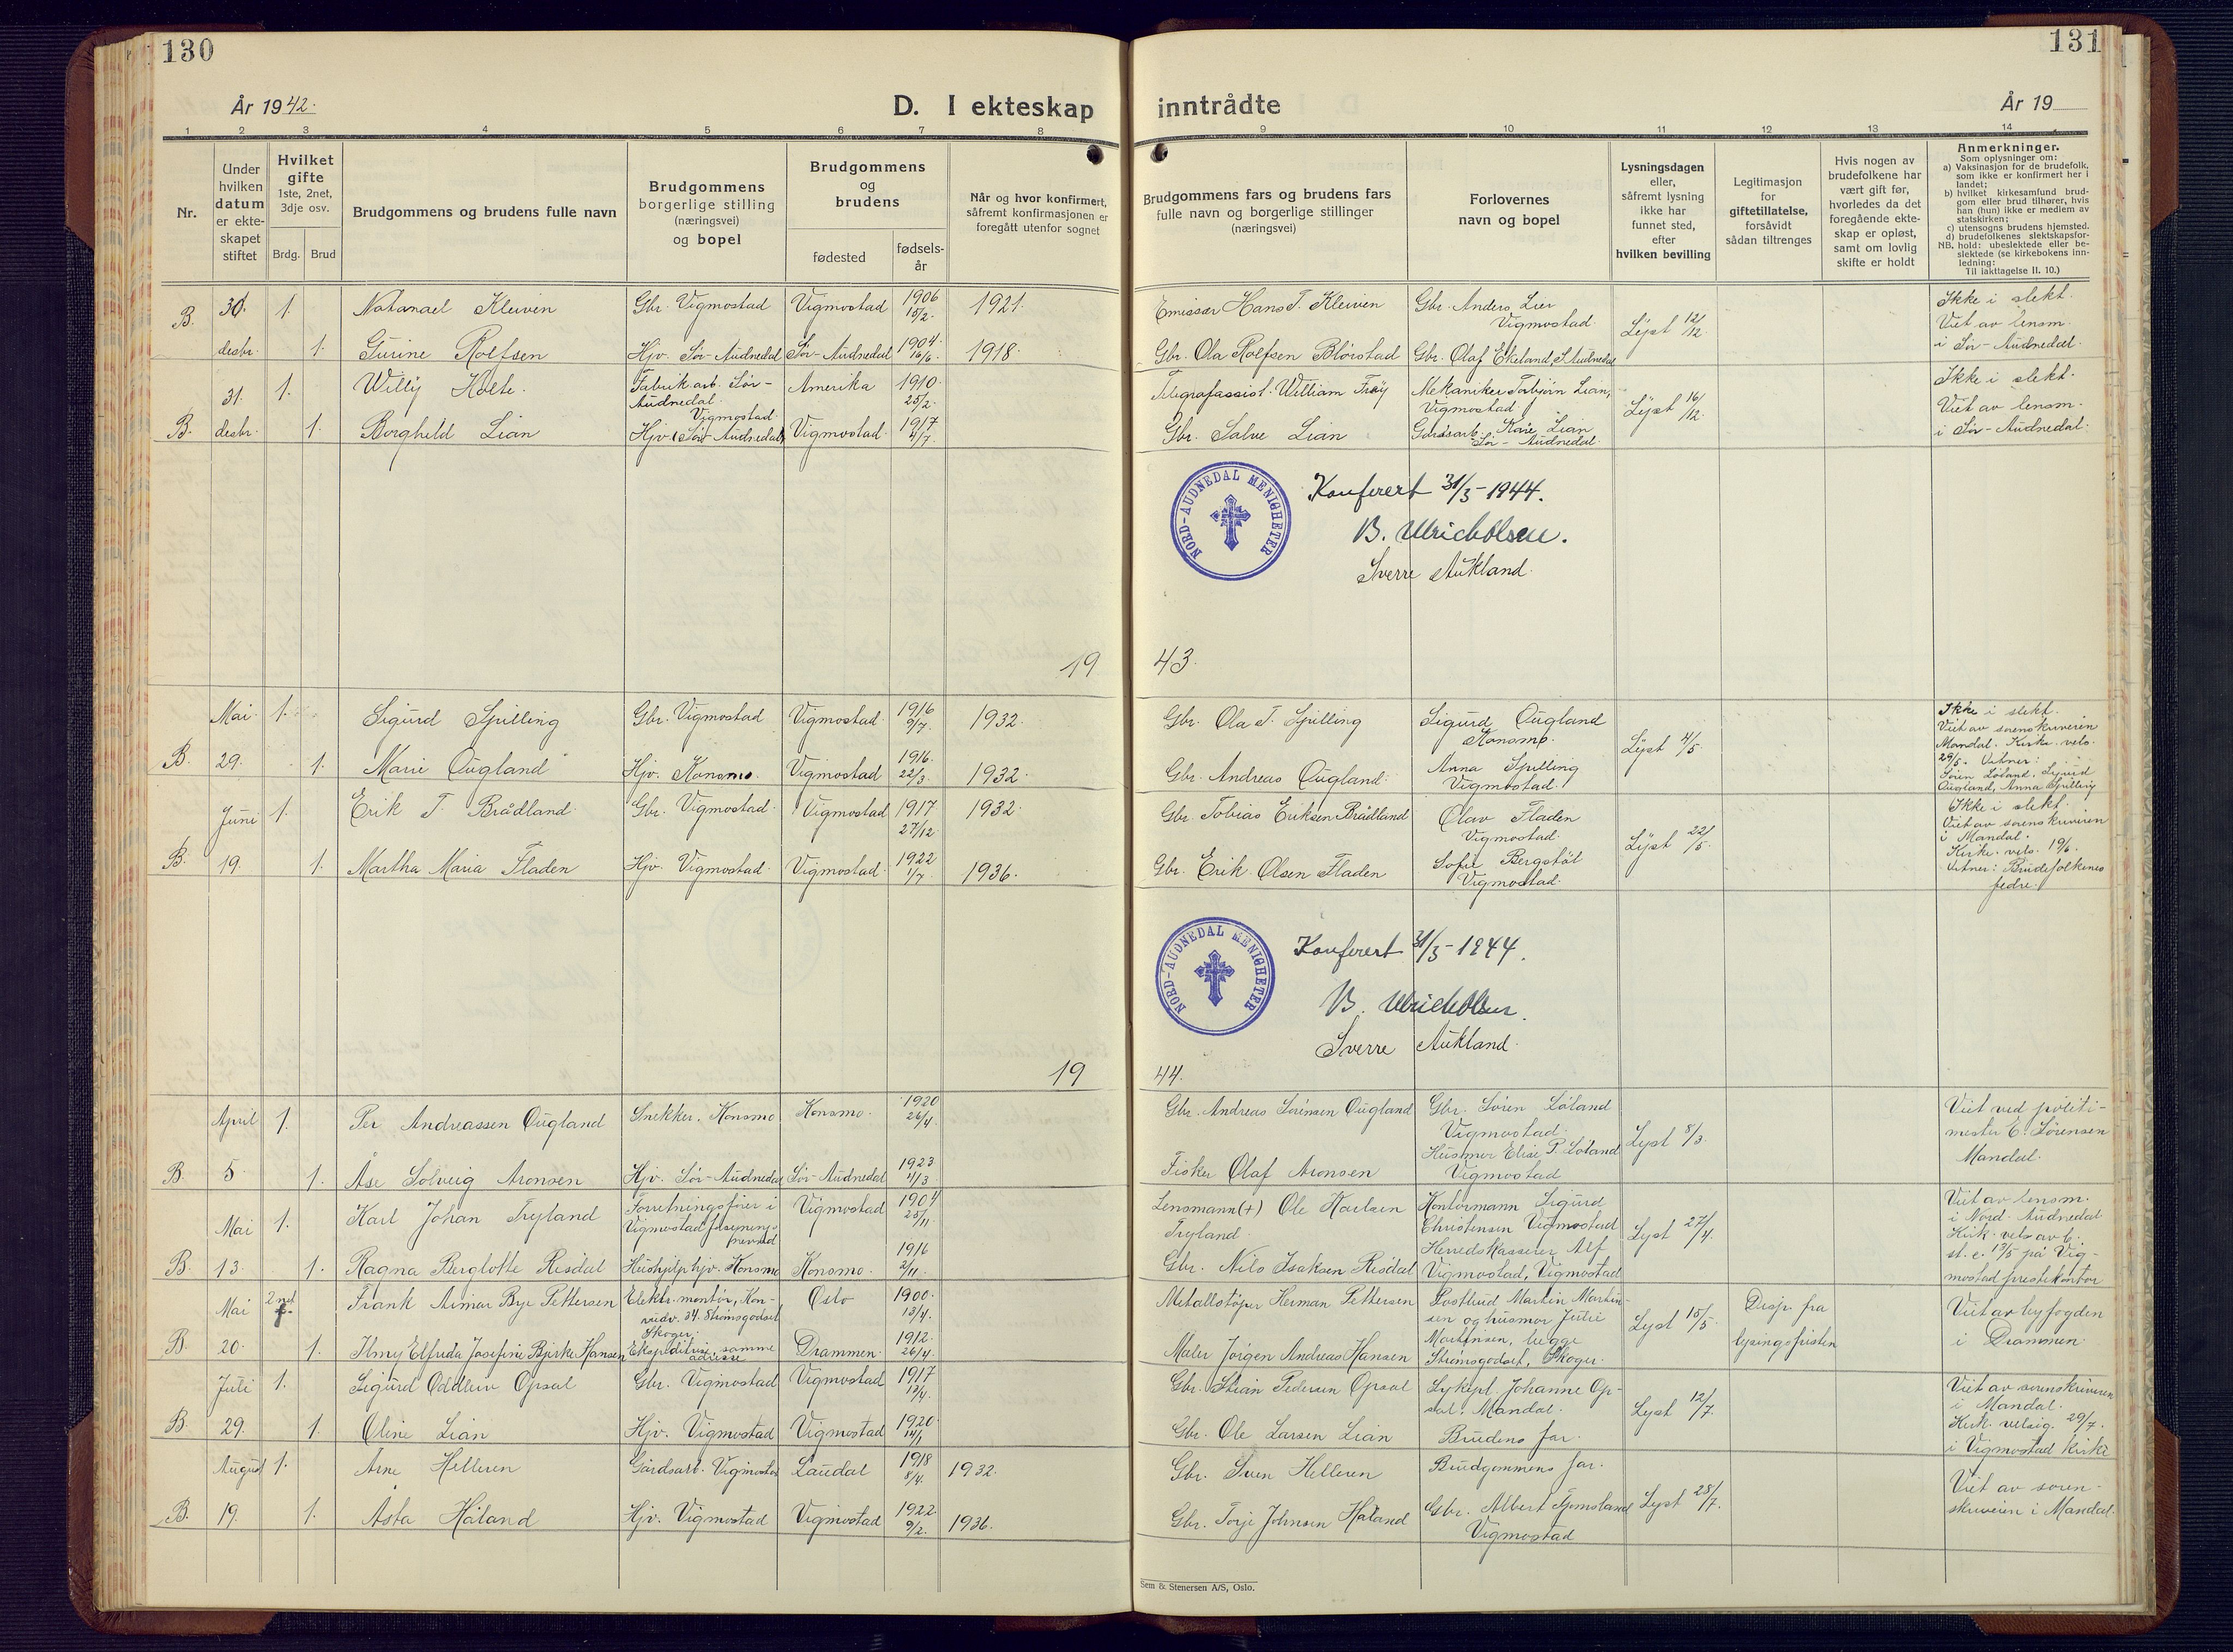 130
131
År 1942.
D. I ekteskap inntrådte
År 19
1 2 3 4 5 6 7 8 9 10 11 12 13 14
Nr.
Under hvilken datum er ekteskapet stiftet
Hvilket gifte
1ste, 2net, 3dje osv.
Brdg. Brud
Brudgommens og brudens fulle navn
Brudgommens borgerlige stilling (næringsvei) og bopel
Brudgommens og brudens
fødested
fødsels-år
Når og hvor konfirmert, såfremt konfirmasjonen er foregått utenfor sognet
Brudgommens fars og brudens fars fulle navn og borgerlige stillinger (næringsvei)
Forlovernes navn og bopel
Lysningsdagen eller, såfremt lysning ikke har funnet sted, efter hvilken bevilling
Legitimasjon for giftetillatelse, forsåvidt sådan tiltrenges
Hvis nogen av brudefolkene har vært gift før, hvorledes da det foregående ekteskap er opløst, samt om lovlig skifte er holdt
Anmerkninger.
Som oplysninger om:
a) Vaksinasjon for de brudefolk, som ikke er konfirmert her i landet;
b) hvilket kirkesamfund brudgom eller brud tilhører, hvis han (hun) ikke er medlem av statskirken;
c) utensogns brudens hjemsted.
d) brudefolkenes slektskapsforhold: ubeslektede eller beslektede (se kirkebokens innledning:
NB.
Til iakttagelse II. 10.)
B. 30. 1. Natanael Kleiven Gbr. Vigmostad Vigmostad 1906 15/2. 1921. Emissær Hans T. Kleiven Gbr. Anders Lier Vigmostad. Lyst 12/12. Ikke i slekt.
desbr. 1. Gurine Rolfsen Hjv. Sør-Audnedal Sør-Audnedal 1904 16/6. 1918. Gbr. Ola Rolfsen Blørstad Gbr. Olaf Ekeland, S. Audnedal Viet av lensm. i Sør-Audnedal.
31. 1. Willy Holte. Fabrik.arb. Sør-Audnedal. Amerika 1910. 25/2. Telegrafassist. William Frøy Mekaniker Torbjørn Lian, Vigmostad Lyst 16/12. Ikke i slekt.
B. desbr. 1. Borghild Lian Hjv. Vigmostad. (Sør-Audnedal) Vigmostad. 1917 4/7. Gbr. Salve Lian Gårdsarb. Kåre Lian Sør-Audnedal. Viet av lensm. i Sør-Audnedal.
NORD-AUDNEDAL MENIGHETER
Konferert 31/3-1944.
B. Ulrichsen.
Sverre Aukland.
19 43.
Mai 1. Sigurd Spilling Gbr. Vigmostad Vigmostad. 1916 9/7. 1932. Gbr. Ola T. Spilling Sigurd Øugland Konsmo. Lyst 4/5. Ikke i slekt. Viet av sorenskriveren Mandal. Kirke. vels. 29/5. Vitner:
B. 29. 1. Marie Øugland Hjv. Konsmo. Vigmostad 1916. 22/3. 1932. Gbr. Andreas Øugland. Anna Spilling Vigmostad. Søren Løland. Sigurd Øugland, Anna Spilling
Juni 1. Erik T. Brådland. Gbr. Vigmostad. Vigmostad 1917 27/12 1932. Gbr. Tobias Eriksen Brådland Olav Fladen Vigmostad. Lyst 22/5. Ikke i slekt. Viet av sorenskriveren i Mandal.
B. 19. 1. Martha Maria Fladen Hjv. Vigmostad. Vigmostad. 1922 1/7. 1936. Gbr. Erik Olsen Fladen Sofie Bergstøl Vigmostad. Kirke. vels. 19/6. Vitner: Brudefolkenes fedre.
NORD-AUDNEDAL MENIGHETER
Konferert 31/3-1944.
B. Ulrichsen.
Sverre Aukland.
19 44.
April 1. Per Andreassen Øugland Snekker. Konsmo Konsmo. 1920 26/4. Gbr. Andreas Sørensen Øugland Gbr. Søren Løland Vigmostad. Lyst 8/3. Viet ved politimester E. Sørensen Mandal.
B. 5. 1. Åse Solveig Aronsen Hjv. Sør-Audnedal Sør-Audnedal 1923 11/3 Fisker Olaf Aronsen Husmor Elise P. Løland Vigmostad
Mai 1. Karl Johan Tryland Forretningsfører i Vigmostad forsyningsnevnd Vigmostad 1904 25/11. Lensmann (+) Ole Karlsen Tryland. Kontormann Sigurd Christensen Vigmostad Lyst 27/4. Viet av lensm. i Nord-Audnedal
B. 13. 1. Ragna Berglotte Risdal Hushjelp hjv. Konsmo Konsmo. 1916 2/11. Gbr. Nils Isaksen Risdal Herredskasserer Alf Vigmostad, Vigmostad Kirk. vels av 13/5 på Vigmostad prestekontor
Mai 2net Frank Arimar Bye Pettersen Elektr. montør, 34. Strømsgodset Skoger. Oslo 1900. 13/4. Metallstøper Herman Pettersen Postbud Martin Martinsen og husmor Julie Martinsen, begge Strømsgodset, Skoger. Lyst 15/5. Disp. fra lysingsfristen Viet av byfogden i Drammen.
B. 20. 1. Ilmy Elfrida Josefine Bjerke Hansen Ekspeditrise, samme adresse Drammen. 1912. 26/4. Maler Jørgen Andreas Hansen
Juli 1. Sigurd Oddleiv Opsal Gbr. Vigmostad Vigmostad 1917 13/4. Gbr. Stian Pedersen Opsal Sykepl. Johanne Opsal. Mandal. Lyst 12/7. Viet av sorenskriveren i Mandal.
B. 29. 1. Oline Lian Hjv. Vigmostad Vigmostad 1920. 14/1 Gbr. Ole Larsen Lian Brudens far. Kirk. velsig. 29/7. i Vigmostad kirke
August 1. Arne Helleren Gårdsarb. Vigmostad Laudal 1918 8/4. 1932. Gbr. Sven Helleren Brudgommens far. Lyst 25/7. Viet av sorenskriveren i Mandal.
B. 19. 1. Asta Håland Hjv. Vigmostad Vigmostad 1922. 9/2. 1936. Gbr. Torje Johnsen Håland Gbr. Albert Tjomsland Vigmostad
Sem & Stenersen A/S, Oslo.